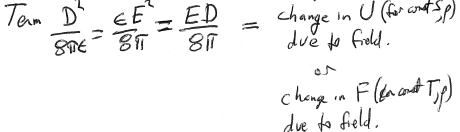 Term D²/8πε = εE²/8π = ED/8π = change in U (for const S,ρ)
due to field.
or
change in F (for const T,ρ)
due to field.